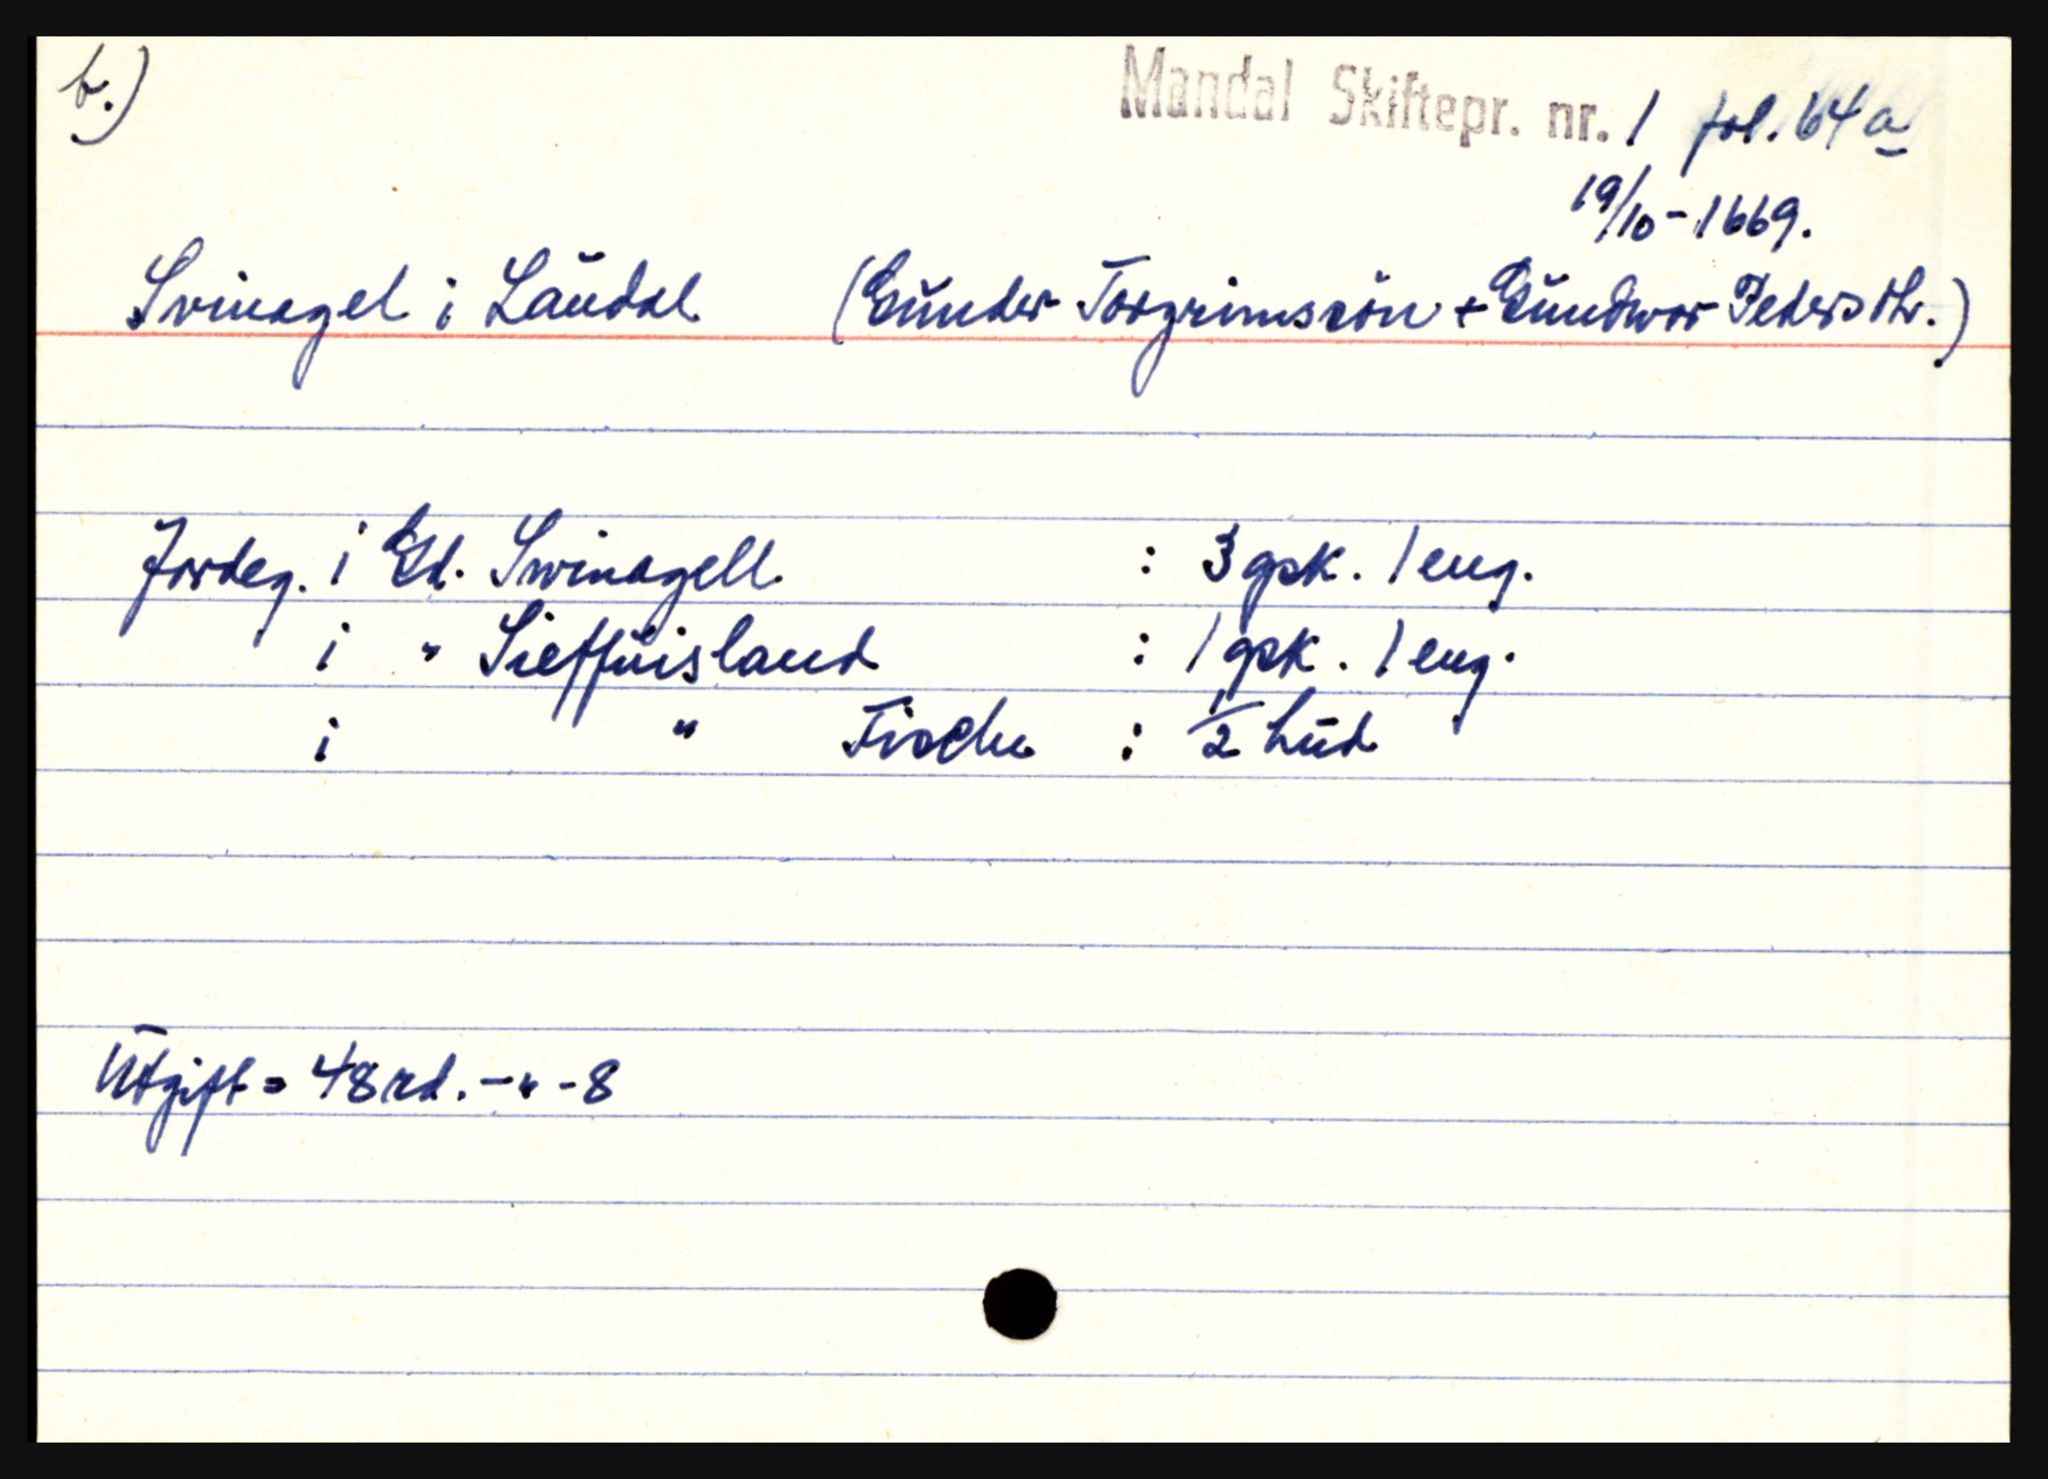 b.)
Mandal Skiftepr. nr. 1 fol. 64a
19/10-1669.
Svinagel i Laudal (Gunder Torgrimssön + Gundwor Pedersdtr.)
Jordeg. i Gd. Swinagell : 3 gsk. 1 eng.
i " Sieffuisland : 1 gsk. 1 eng.
i " Fische : 1/2 hud
Utgift = 48 rd. - " - 8